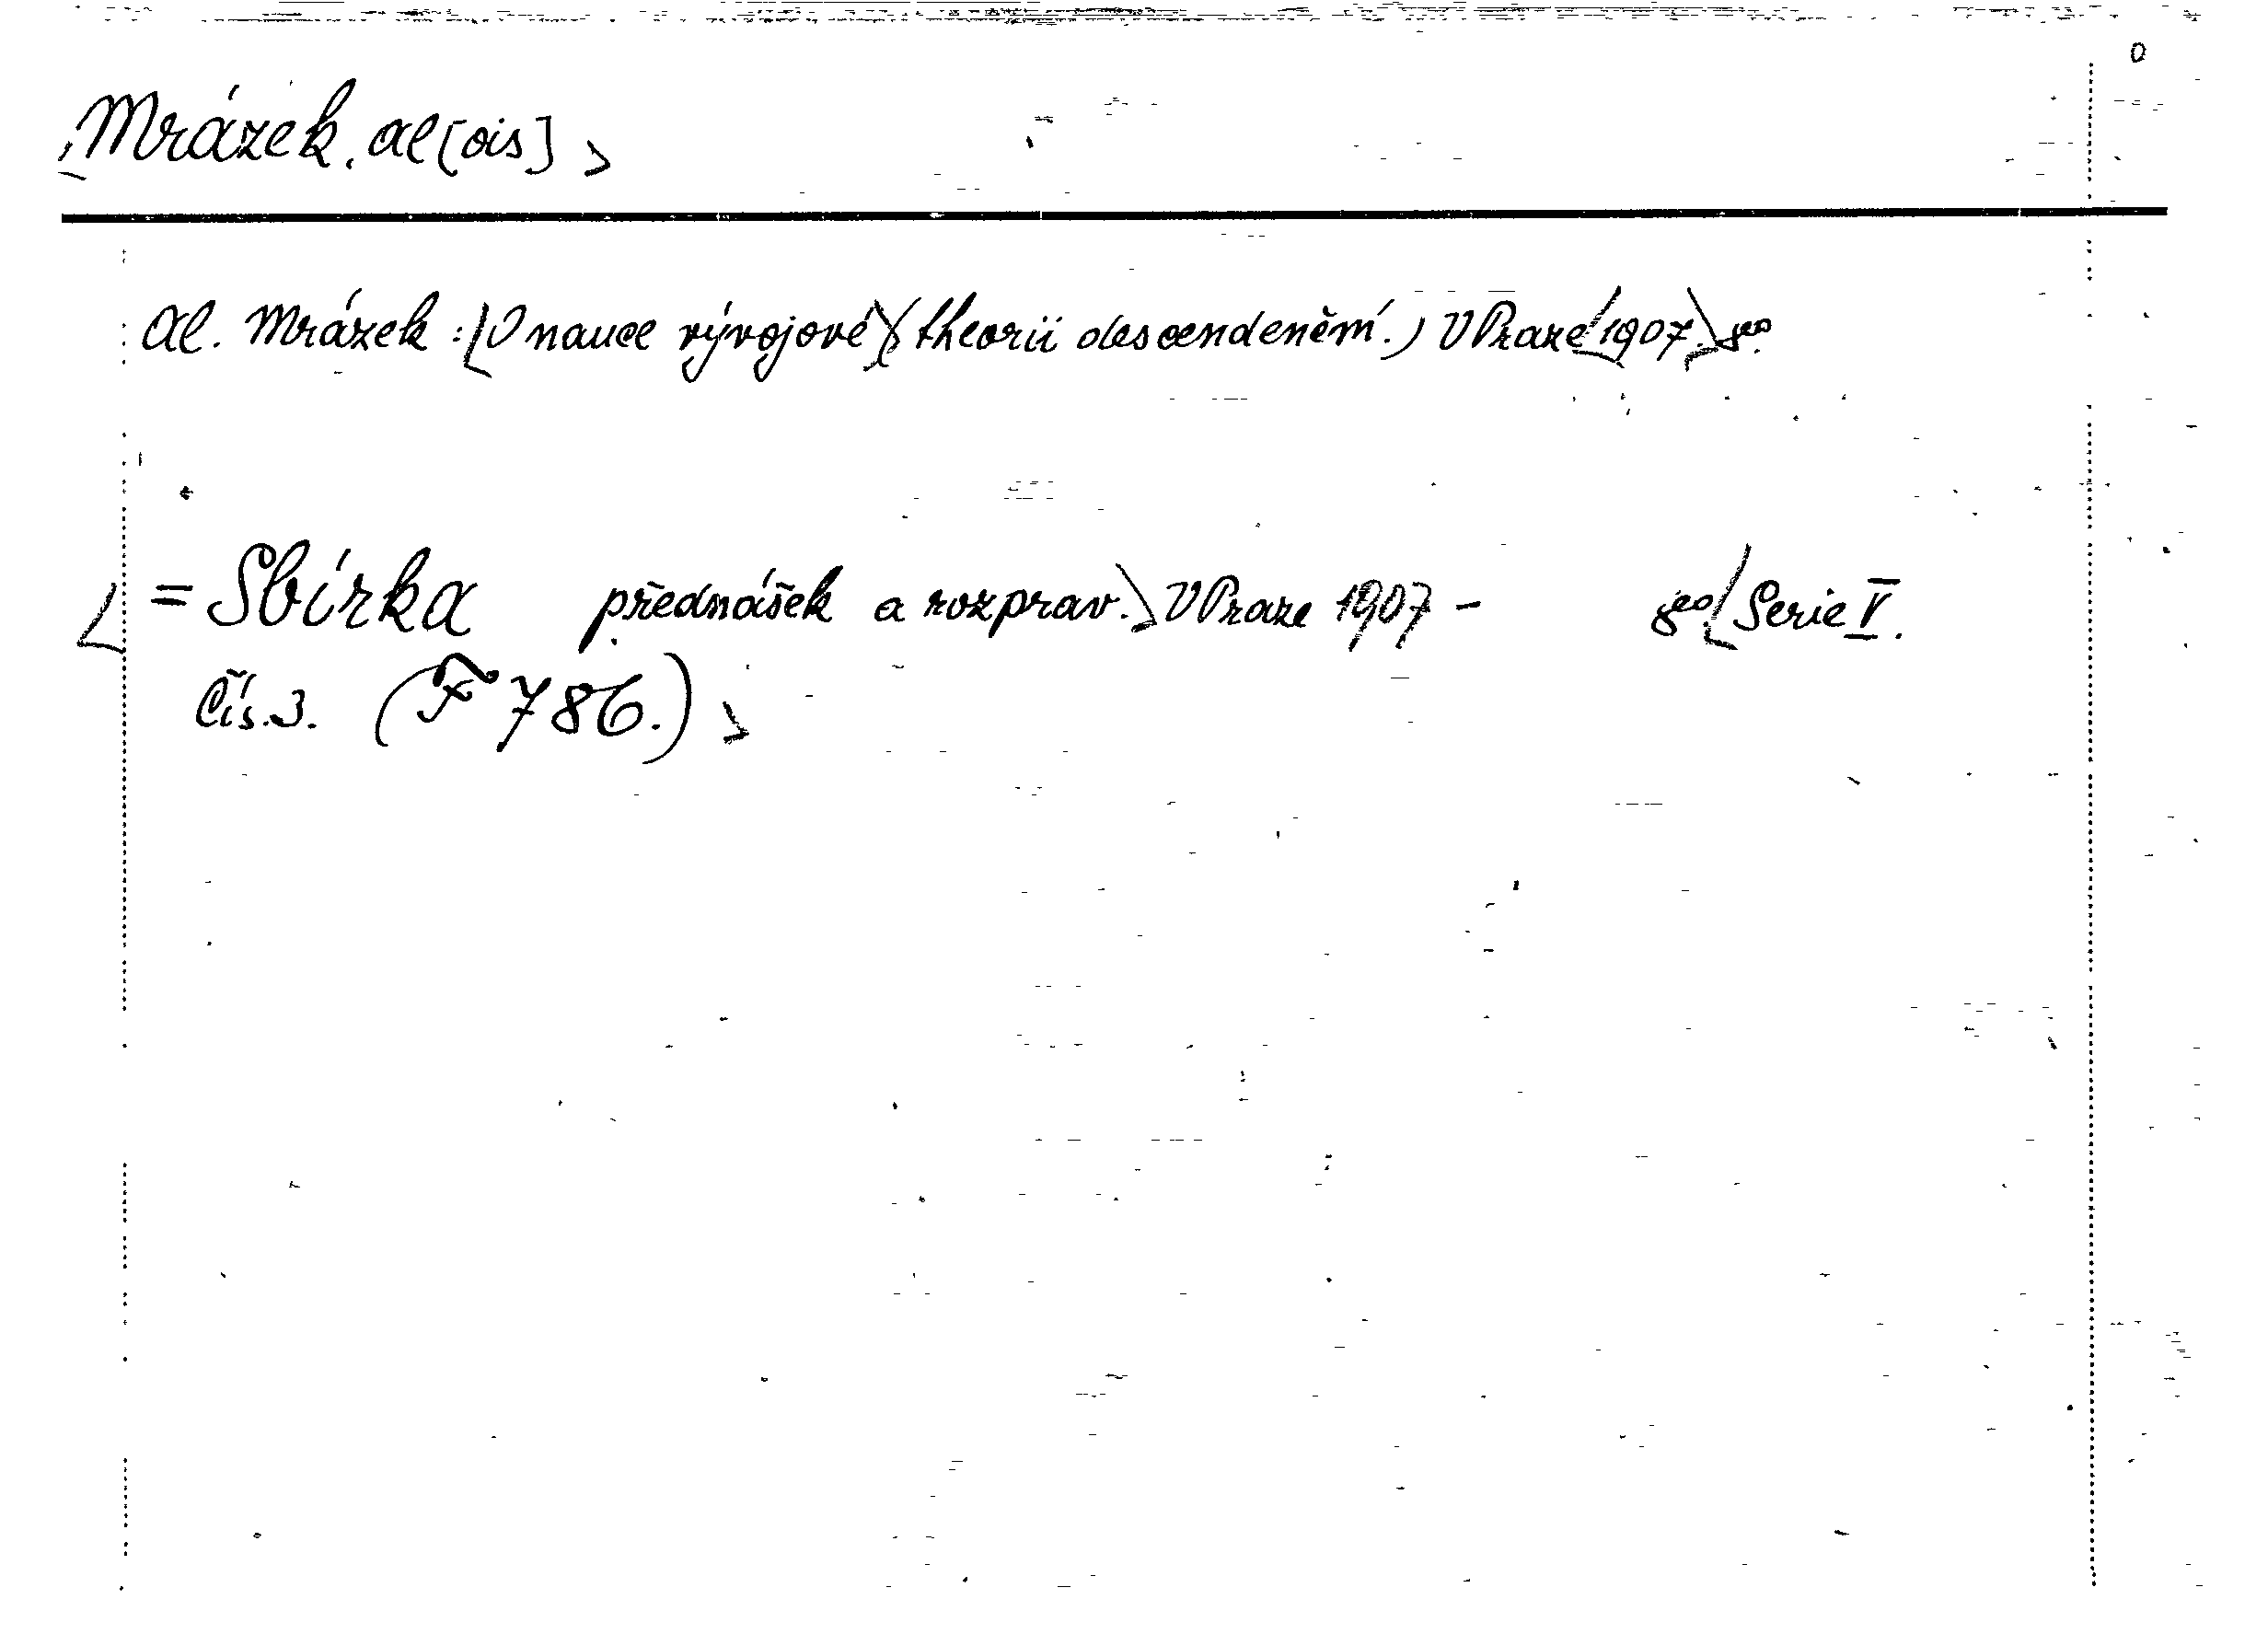 Mrázek, Al[ois]
Al. Mrázek: O nauce vývojové (theorii descendenění.) V Praze 1907. 8o.
= Sbírka přednášek a rozprav. V Praze 1907 - 8o. Serie V.
Čís. 3. (F 786.)